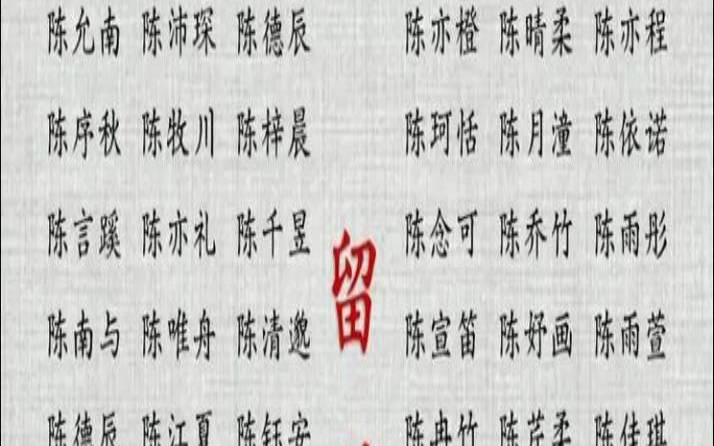 陈允南 陈沛琛 陈德辰 陈亦橙 陈晴柔 陈亦程
陈序秋 陈牧川 陈梓晨 陈珂恬 陈月潼 陈依诺
陈言蹊 陈亦礼 陈千昱 陈念可 陈乔竹 陈雨彤
留
陈南与 陈唯舟 陈清邈 陈宣笛 陈妤画 陈雨萱
陈德辰 陈江夏 陈钰安 陈冉竹 陈芷柔 陈佳琪